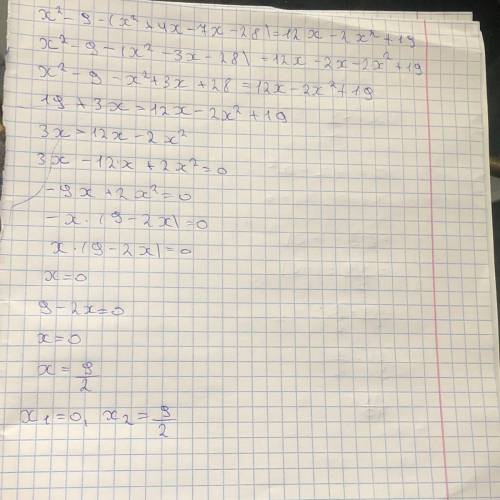 x² - 9 - (x² + 4x - 7x - 28) = 12x - 2x² + 19
x² - 9 - (x² - 3x - 28) = 12x - 2x - 2x² + 19
x² - 9 - x² + 3x + 28 = 12x - 2x² + 19
19 + 3x = 12x - 2x² + 19
3x = 12x - 2x²
3x - 12x + 2x² = 0
-9x + 2x² = 0
-x · (9 - 2x) = 0
x · (9 - 2x) = 0
x = 0
9 - 2x = 0
x = 0
x = 9/2
x₁ = 0, x₂ = 9/2